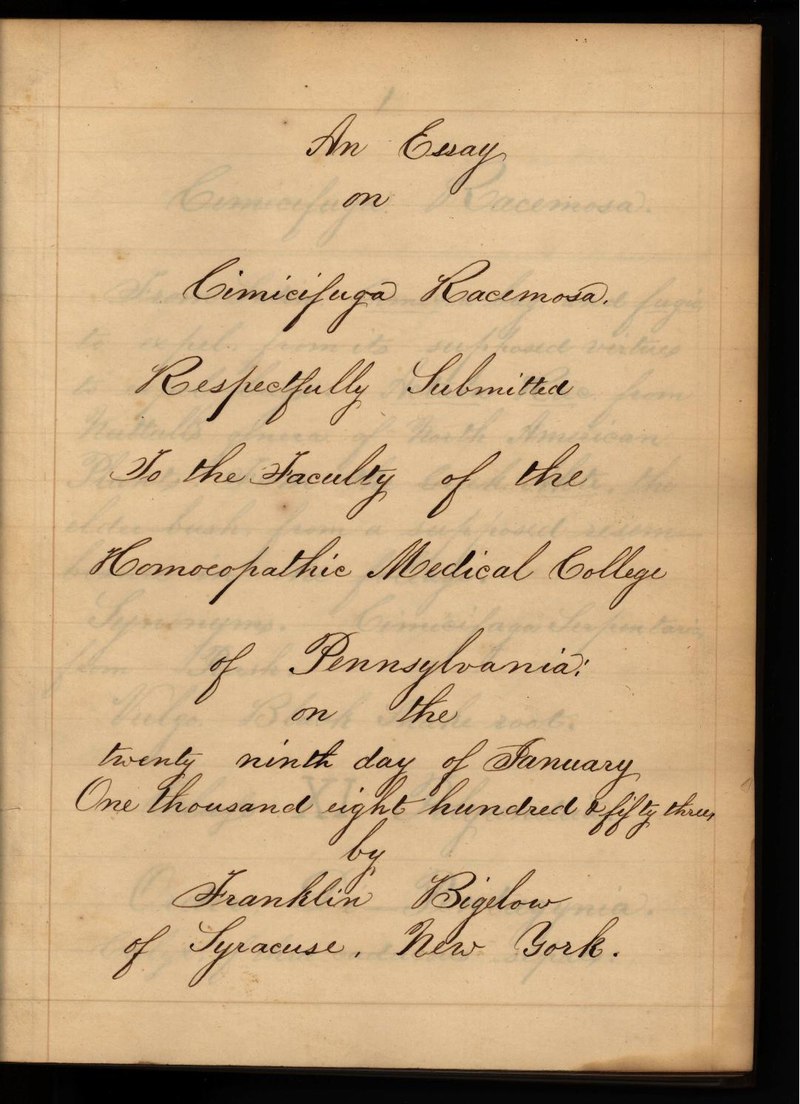 An Essay
on
Cimicifuga Racemosa.
Respectfully Submitted
To the Faculty of the
Homoeopathic Medical College
of Pennsylvania:
on the
twenty ninth day of January
One thousand eight hundred & fifty three,
by
Franklin Bigelow
of Syracuse, New York.